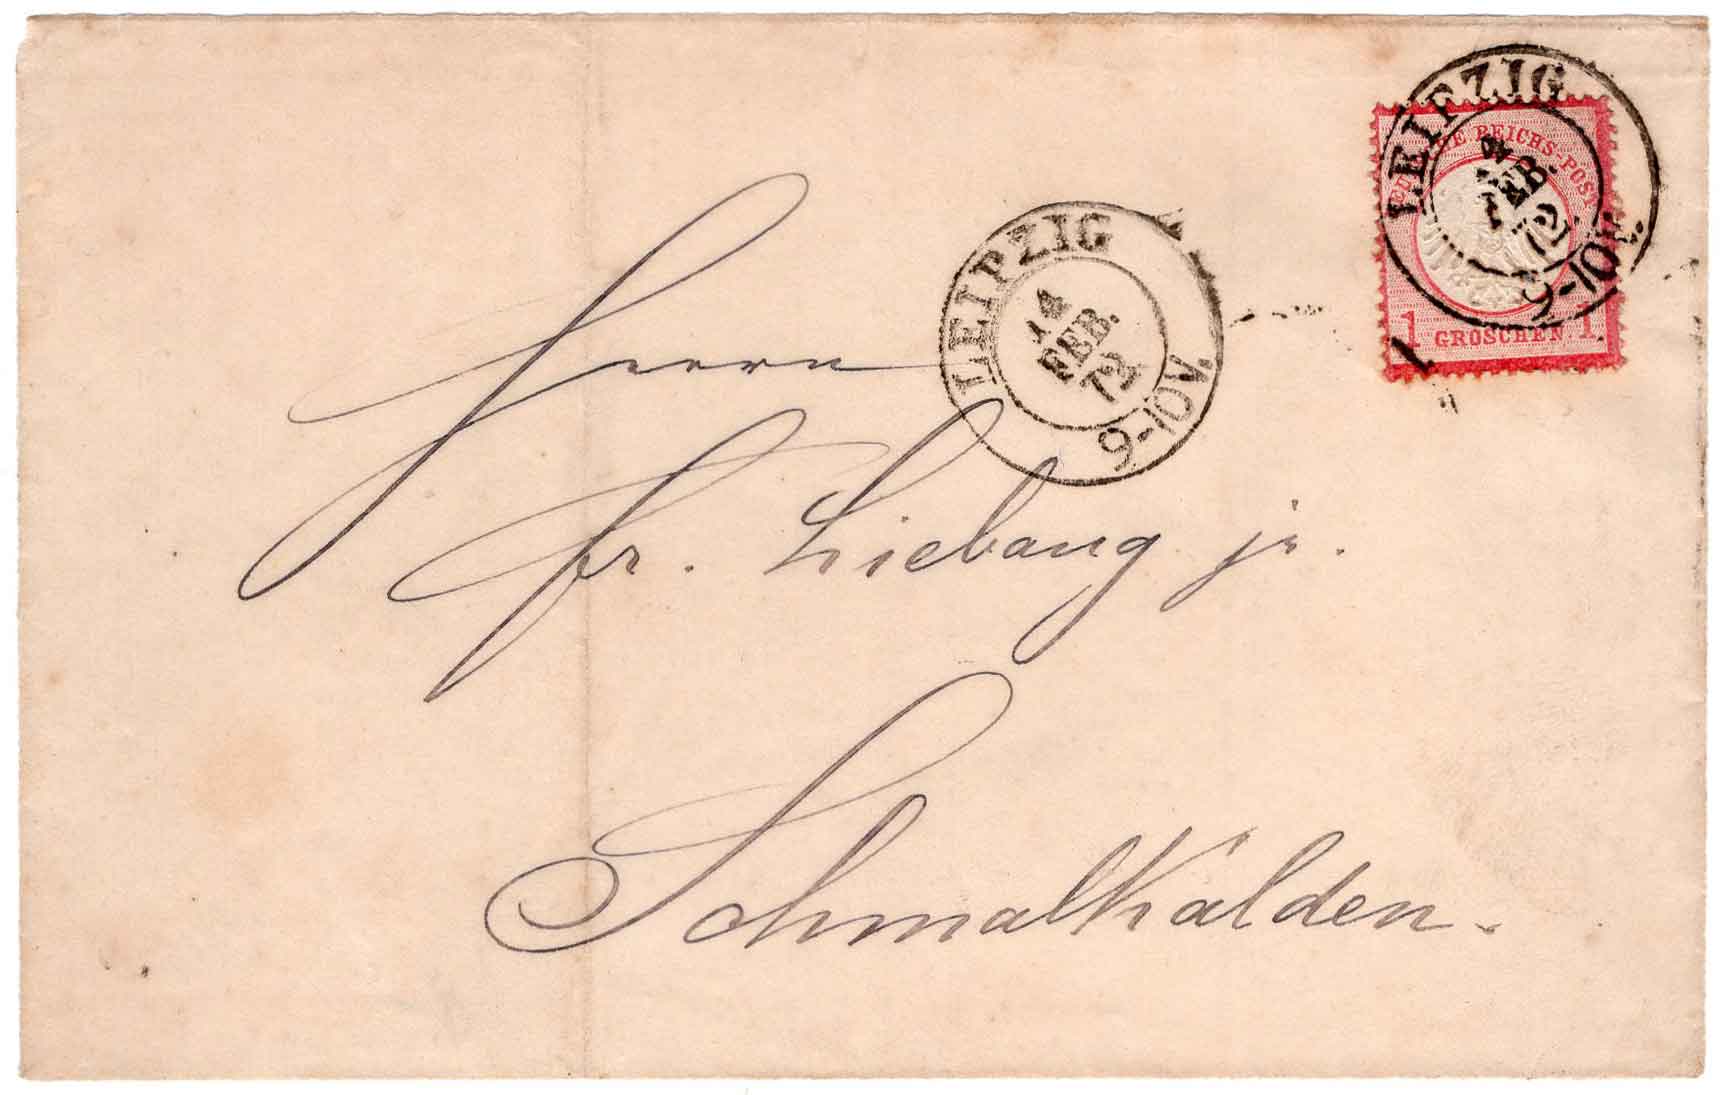 LEIPZIG
14
FEB.
72
9-10V.
DEUTSCHE REICHS-POST
1 GROSCHEN. 1
LEIPZIG
14
FEB.
72
9-10V.
Herrn
Fr. Liebaug jr.
Schmalkalden.